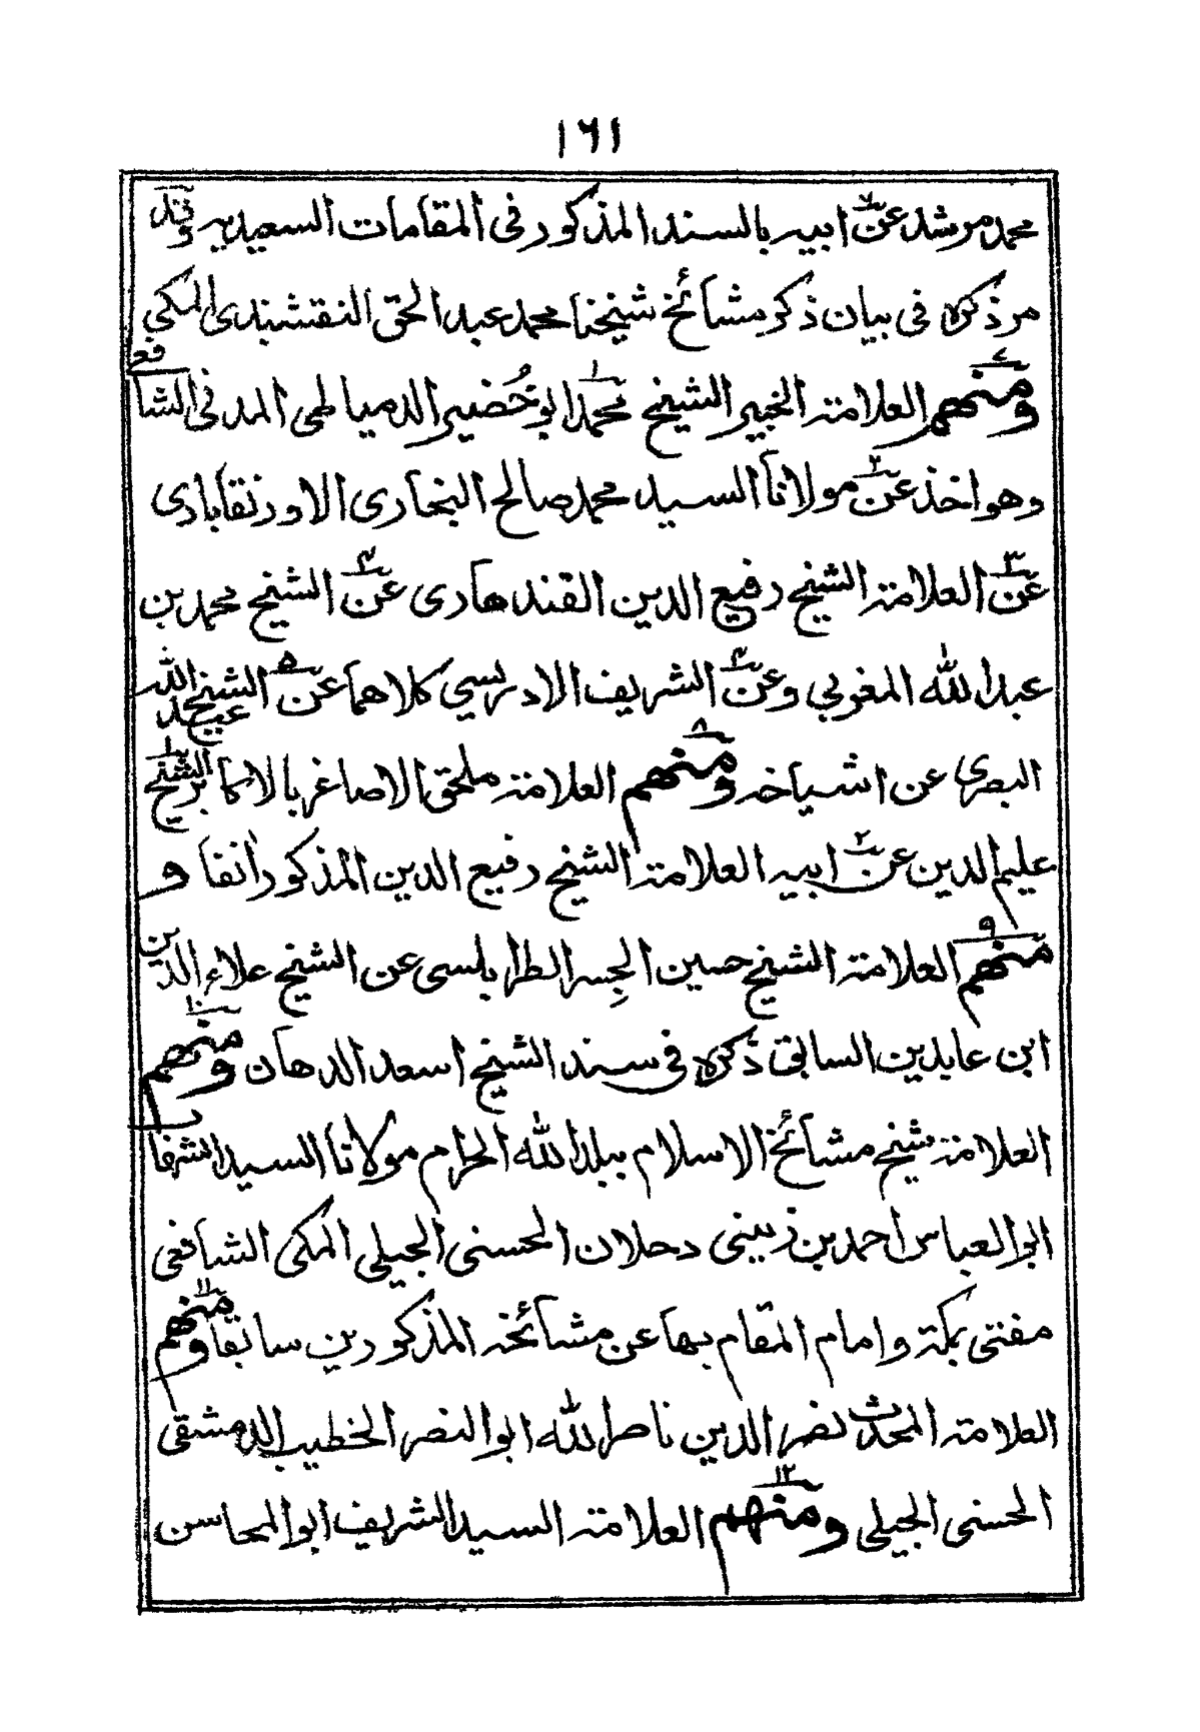 ١٦١
محمد مرشد عن٧ ابيه بالسند المذكور فى المقامات السعيديه وقد
مر ذكره فى بيان ذكر مشائخ شيخنا محمد عبد الحق النقشبندى المكى
ومنهم٧ العلامة الخبير الشيخ١ محمد ابو خُضير الدمياطى المدنى الشافعى
وهو اخذ عن٢ مولانا السيد محمد صالح البخارى الاورنقابادى
عن٣ العلامة الشيخ رفيع الدين القندهارى عن٤ الشيخ محمد بن
عبد الله المغربي وعن٤ الشريف الادريسي كلاهما عن٥ الشيخ عبد الله
البصرى عن اشياخه ومنهم٨ العلامة ملحق الاصاغر بالاكابر الشيخ١
عليم الدين عن٢ ابيه العلامة الشيخ رفيع الدين المذكور انفا و
منهم٩ العلامة الشيخ حسين الجِسر الطرابلسى عن الشيخ علاء الدين
ابن عابدين السابق ذكره فى سند الشيخ اسعد الدهان ومنهم١٠
العلامة شيخ مشائخ الاسلام ببلد الله الحرام مولانا السيد الشرفا
ابو العباس احمد بن زيني دحلان الحسنى الجيلى المكى الشافعى
مفتى بمكة وامام المقام بها عن مشائخه المذكورين سابقا ومنهم١١
العلامة المحدث نصر الدين ناصر الله ابو النصر الخطيب الدمشقى
الحسنى الجيلى ومنهم١٢ العلامة السيد الشريف ابو المحاسن